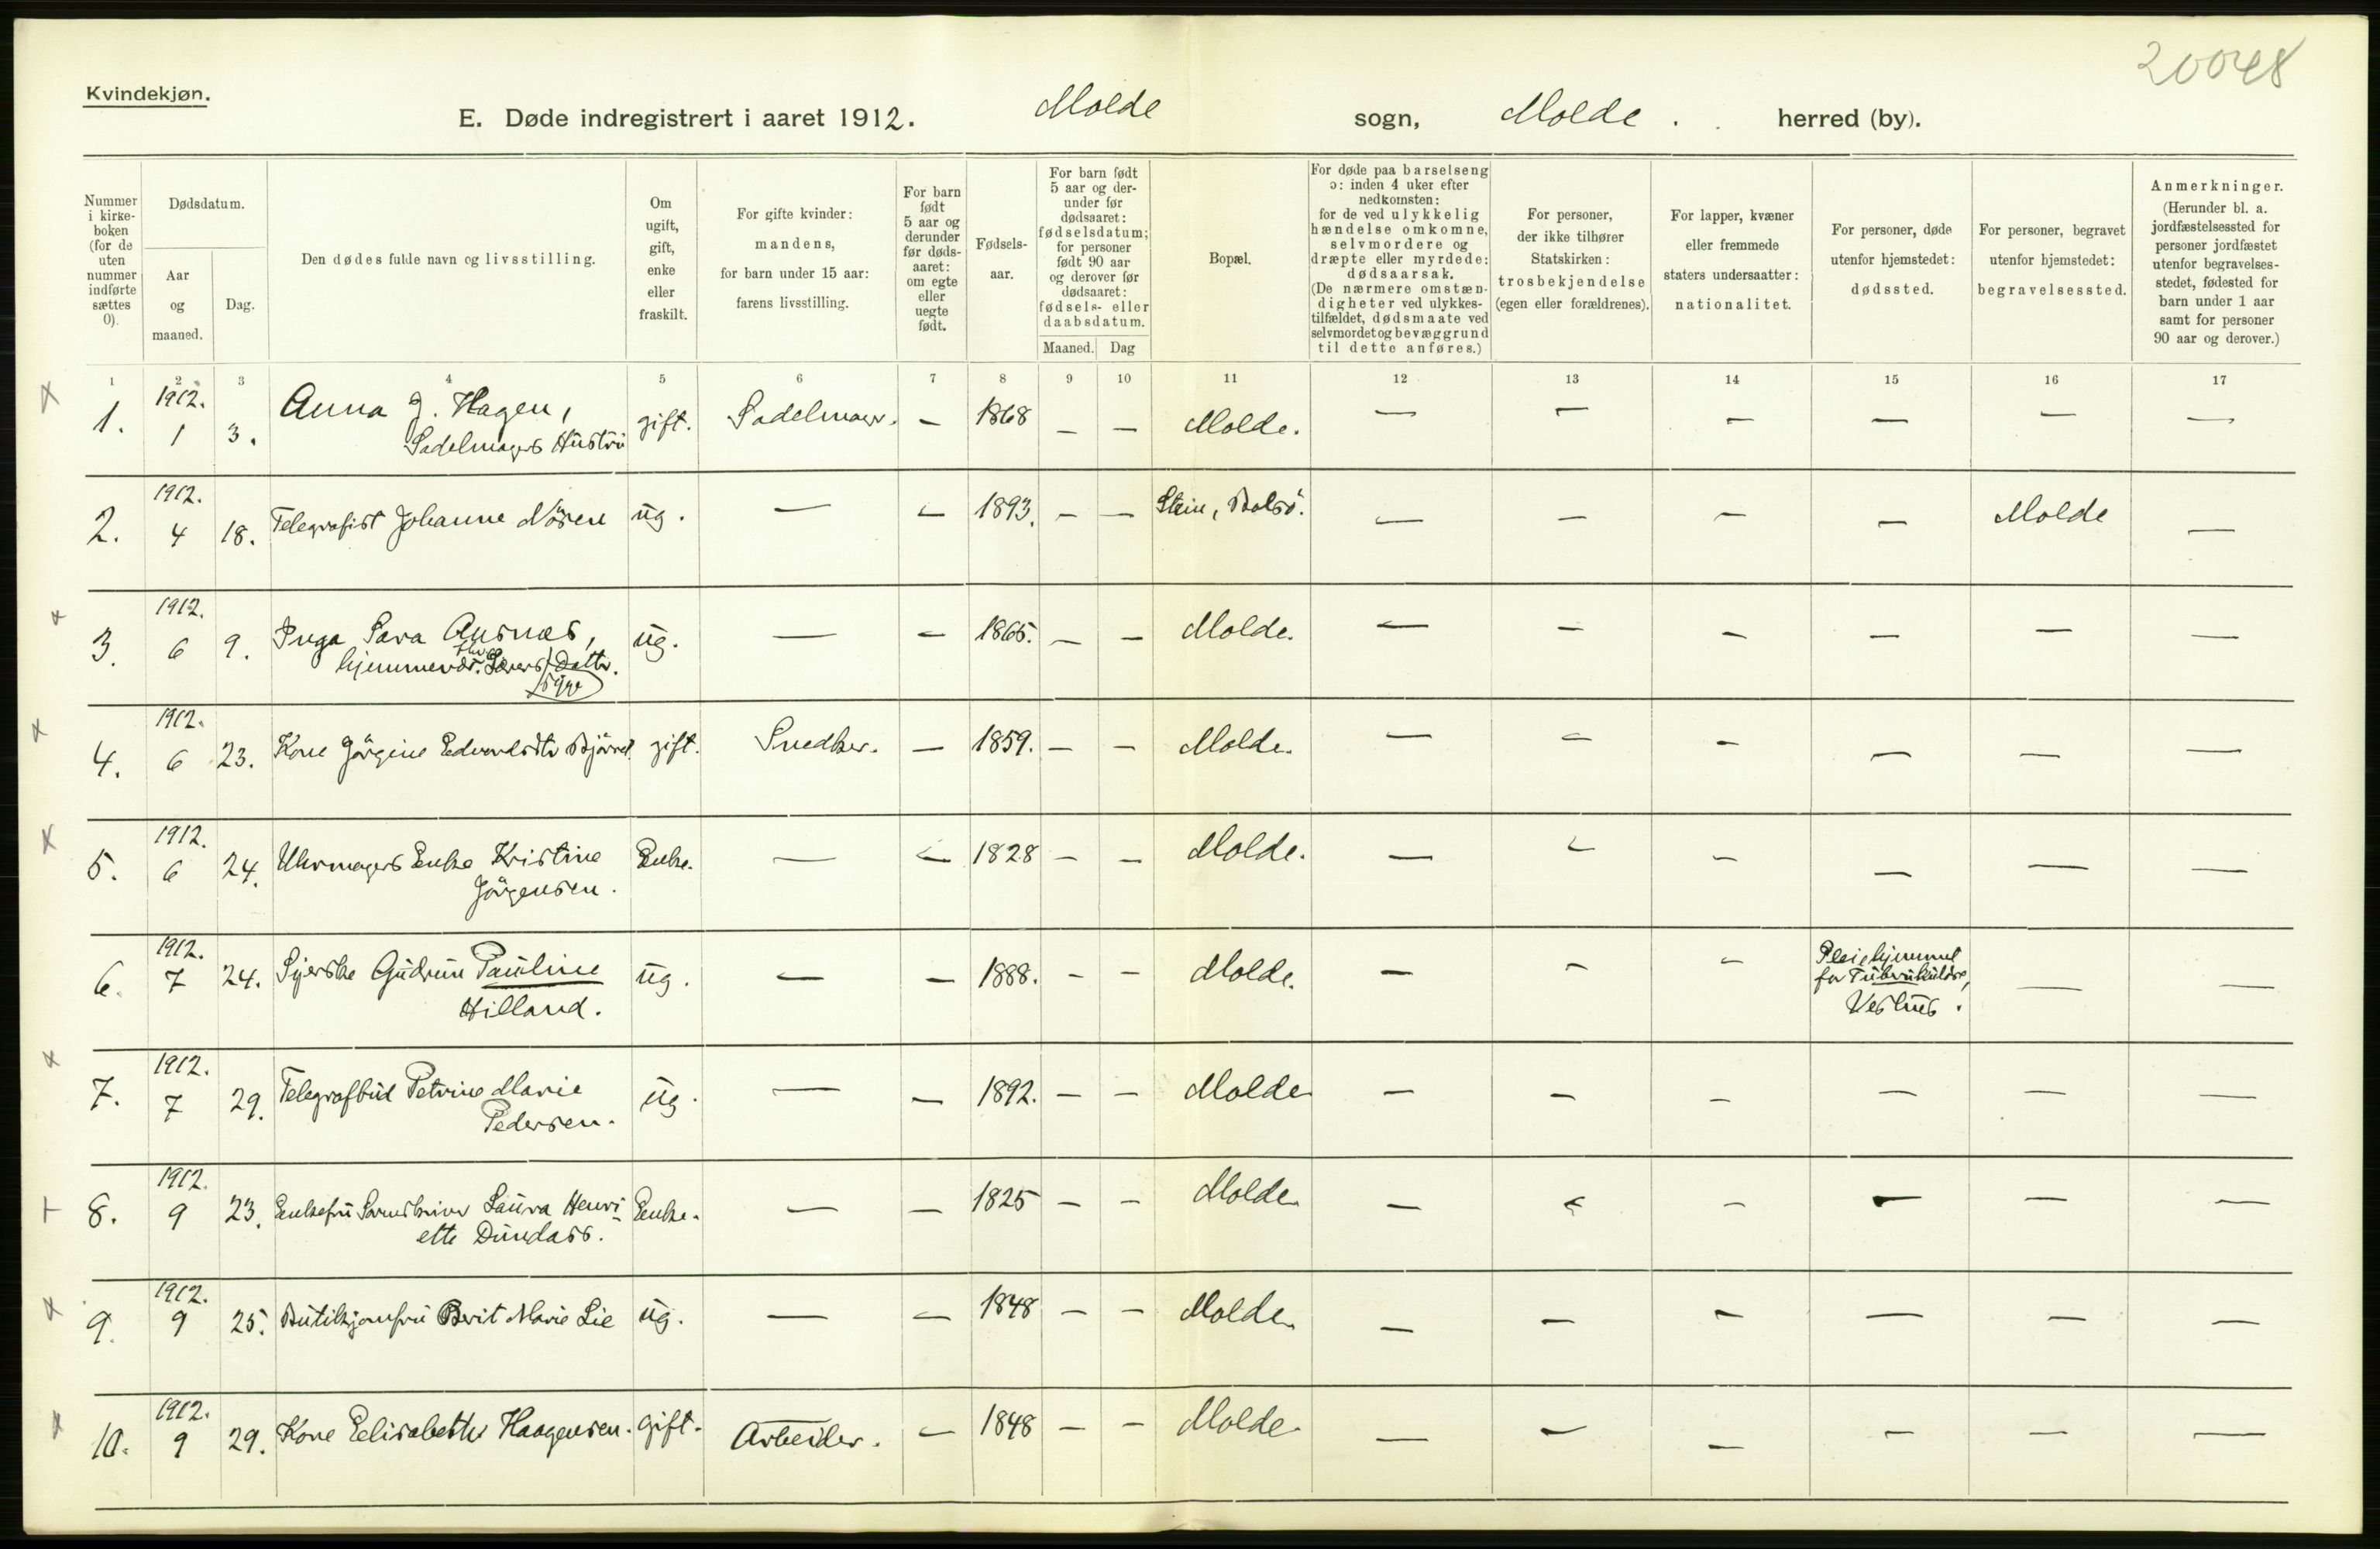 20048
Kvindekjøn.
E. Døde indregistrert i aaret 1912. Molde sogn, Molde. herred (by).
Nummer i kirke-boken (for de uten nummer indførte sættes 0).
Dødsdatum.
Aar og maaned.
Dag.
Den dødes fulde navn og livsstilling.
Om ugift, gift, enke eller fraskilt.
For gifte kvinder: mandens, for barn under 15 aar: farens livsstilling.
For barn født 5 aar og derunder før døds-aaret: om egte eller uegte født.
Fødsels-aar.
For barn født 5 aar og der-under før dødsaaret: fødselsdatum; for personer født 90 aar og derover før dødsaaret: fødsels- eller daabsdatum.
Maaned. Dag
Bopæl.
For døde paa barselseng ɔ: inden 4 uker efter nedkomsten: for de ved ulykkelig hændelse omkomne, selvmordere og dræpte eller myrdede: dødsaarsak. (De nærmere omstæn-digheter ved ulykkes-tilfældet, dødsmaate ved selvmordet og bevæggrund til dette anføres.)
For personer, der ikke tilhører Statskirken: trosbekjendelse (egen eller forældrenes).
For lapper, kvæner eller fremmede staters undersaatter: nationalitet.
For personer, døde utenfor hjemstedet: dødssted.
For personer, begravet utenfor hjemstedet: begravelsessted.
Anmerkninger. (Herunder bl. a. jordfæstelsessted for personer jordfæstet utenfor begravelses-stedet, fødested for barn under 1 aar samt for personer 90 aar og derover.)
1 2 3 4 5 6 7 8 9 10 11 12 13 14 15 16 17
1. 1912. 1 3. Anna J. Hagen, Sadelmagers Hustru gift. Sadelmager. — 1868 — — Molde. — — — — — —
2. 1912. 4 18. Telegrafist Johanne Nösen ug. — — 1893. — — Stein, Bolsö. — — — — Molde —
3. 1912. 6 9. Inga Sara Ausnæs, hjemmevær. Datter. ug. — — 1865. — — Molde. — — — — — —
4. 1912. 6 23. Kone Jörgine Edvardsdtr gift. Snedker. — 1859. — — Molde. — — — — — —
5. 1912. 6 24. Uhrmagers Enke Kristine Jörgensen. Enke. — — 1828 — — Molde. — — — — — —
6. 1912. 7 24. Syerske Gudrun Pauline Hilland. ug. — — 1888. — — Molde. — — — Pleiehjemmet for Tuberkulöse, — —
7. 1912. 7 29. Telegrafbud Petrine Marie Pedersen. ug. — — 1892. — — Molde — — — — — —
8. 1912. 9 23. Enkefru Sorenskriver Laura Henriette Dundass. Enke. — — 1825 — — Molde — — — — — —
9. 1912. 9 25. Butikjomfru Berit Marie Lie ug. — — 1848 — — Molde — — — — — —
10. 1912. 9 29. Kone Elisabeth Haagensen. gift. Arbeider. — 1848 — — Molde — — — — — —